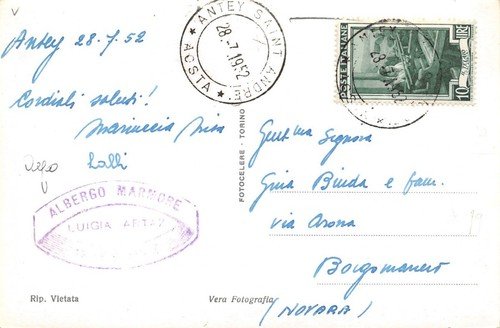 V
Antey 28.7.52
Cordiali saluti!
Mariuccia
Lalli
ANTEY SAINT ANDRE
28.7.1952
* AOSTA *
POSTE ITALIANE
LIRE 10
FOTOCELERE - TORINO
ALBERGO MARMORE
LUIGIA
Gent.ma Signora
Gina Binda e fam.
via Arona
Borgomanero
(NOVARA)
Rip. Vietata
Vera Fotografia